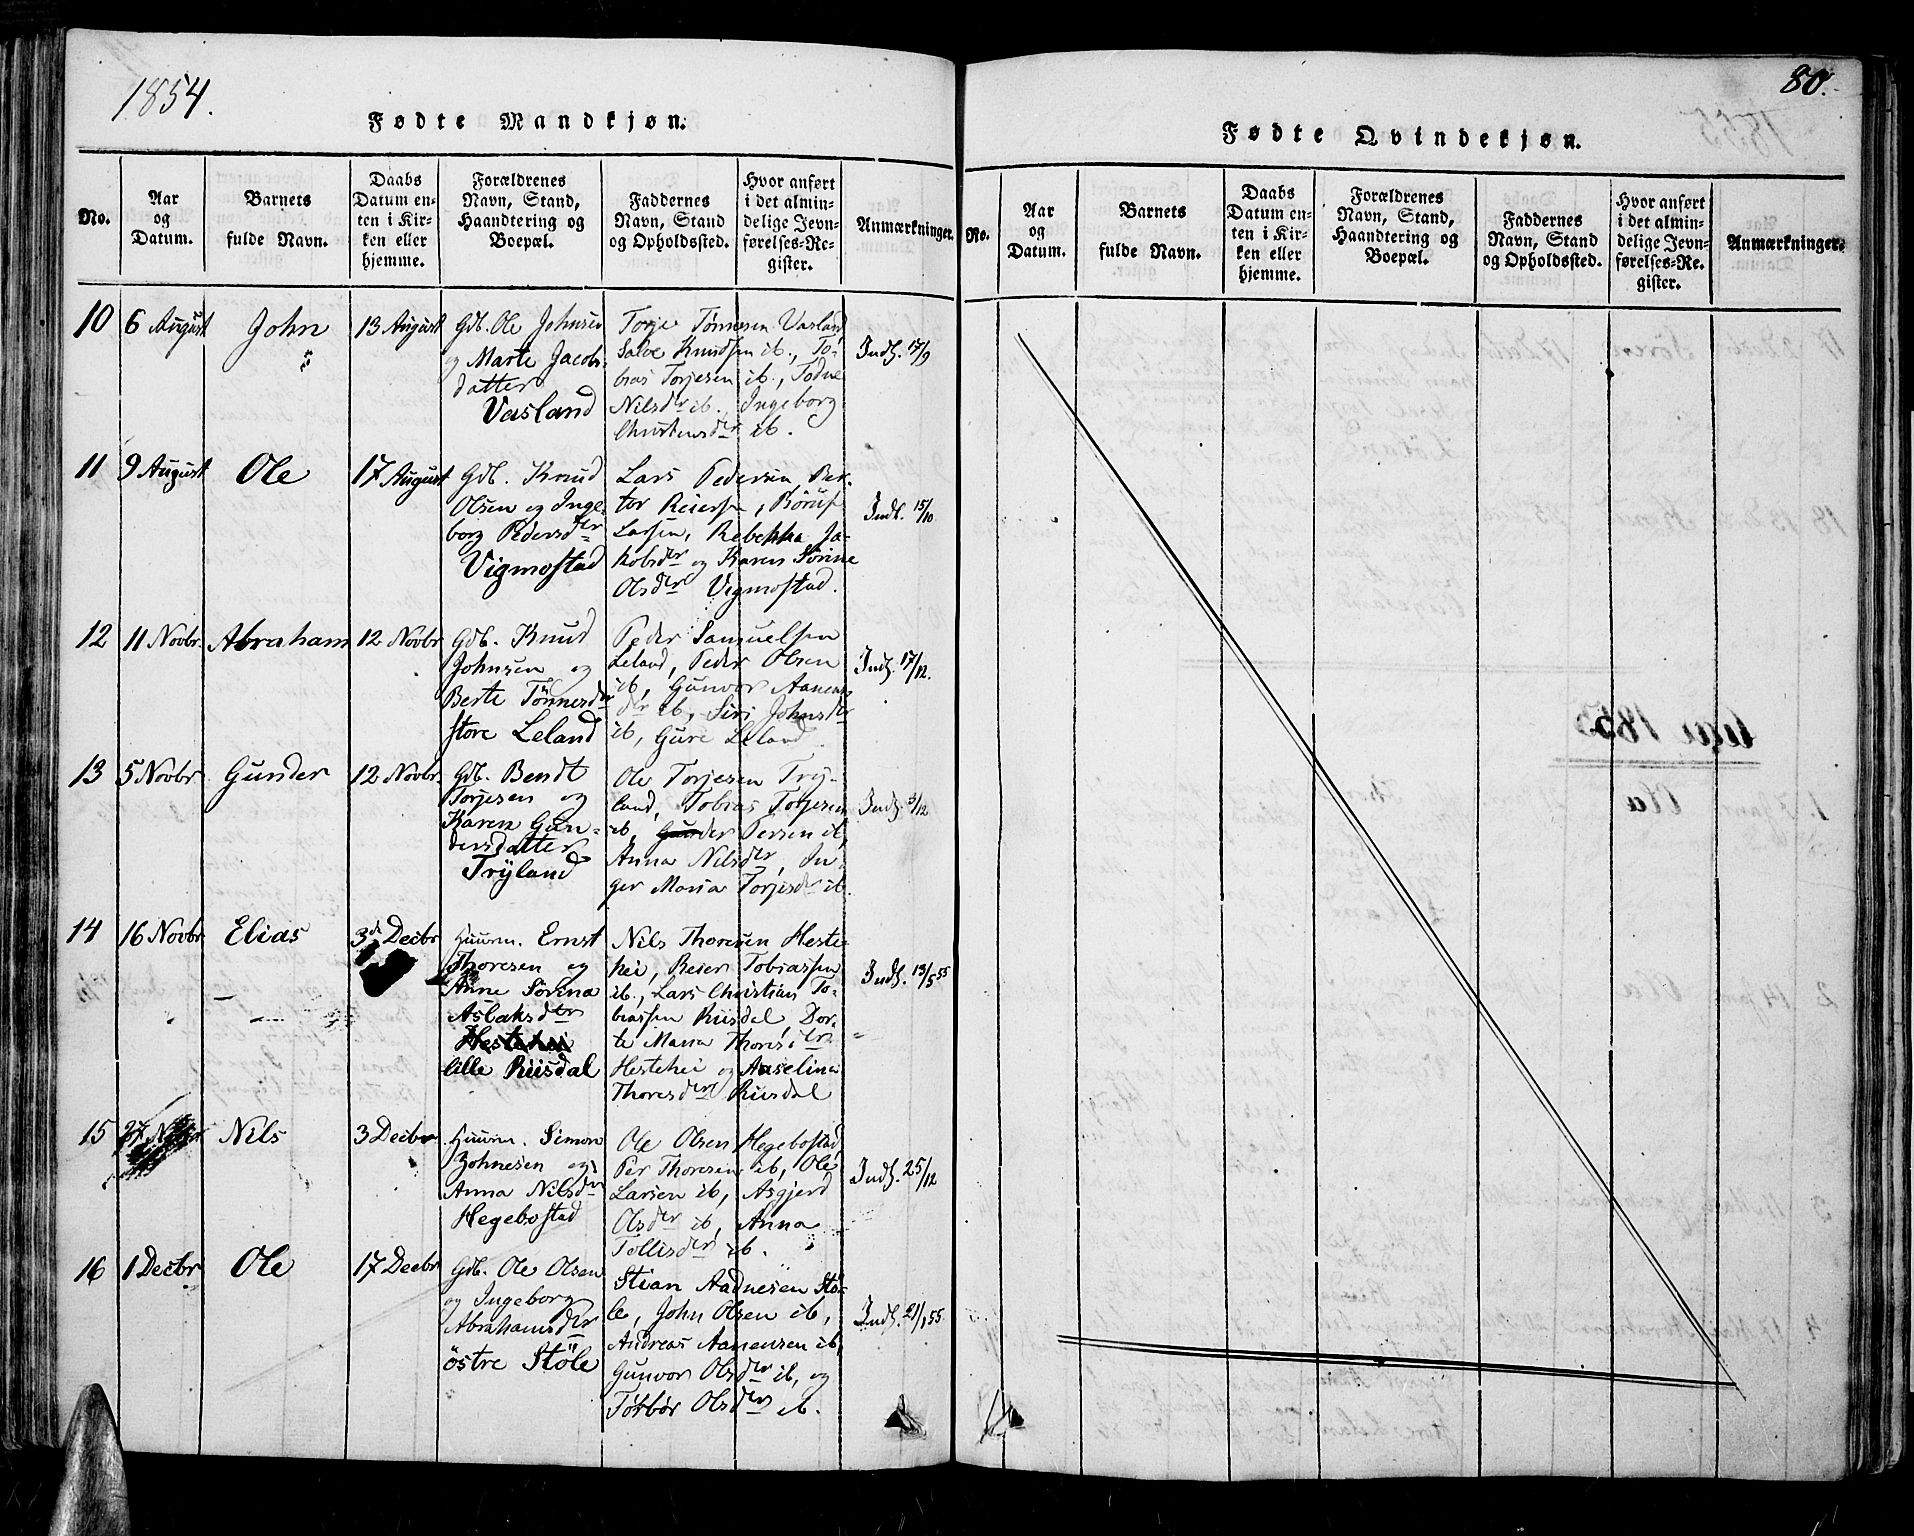 1854.
Fødte Mandkjøn.
No.
Aar
og
Datum.
Barnets
fulde Navn.
Daabs
Datum en-
ten i Kir-
ken eller
hjemme.
Forældrenes
Navn, Stand,
Haandtering og
Boepæl.
Faddernes
Navn, Stand
og Opholdssted.
Hvor anført
i det almin-
delige Jevn-
førelses-Re-
gister.
Anmærkninger.
10
6 August
John
13 August
Gdb. Ole Johnsen
og Marte Jacobs-
datter
Vasland
Torje Tønnesen Vasland
Salve Knudsen ib., To-
bias Torjesen ib., Todne
Nilsder ib., Ingeborg
Christensder ib.
Indf. 17/9
11
9 August
Ole
17 August
Gdb. Knud
Olsen og Inge-
borg Pedersder
Vigmostad
Lars Pedersen, Per-
ter Reiersen, Børuf
Larsen, Rebekka Ja-
kobsder og Karen Sørine
Olsder Vigmostad.
Indf. 15/10
12
11 Novbr.
Abraham
12 Novbr
Gdb. Knud
Johnsen og
Berte Tönnesder
store Leland
Peder Samuelsen
Leland, Peder Olsen
ib, Gunvor Aanens
der ib, Siri Johnsder
ib, Gure Leland
Indf. 17/12.
13
5 Novbr
Gunder
12 Novbr.
Gdb. Bendt
Torjesen og
Karen Gun-
dersdatter
Tryland
Ole Torjesen Try-
land, Tobias Torjesen
ib, Gunder Persen ib,
Anna Nilsder, In-
ger Maria Torjesder ib.
Indf. 3/12
14
16 Novbr
Elias
3d Decbr
Huusm. Ernst
Thoresen og
Anne Sörina
Aslaksder
Hestehei
lille Riisdal
Nils Thoresen Heste-
hei, Reier Tobiassen
ib., Lars Christian To-
biassen Riisdal, Dor-
te Maria Thoresder
Hestehei og Aaselina
Thoresder Riisdal
Indf. 13/5 55
15
27 Novbr
Nils
3 Decbr
Huusm. Simon
Johnesen og
Anna Nilsder
Hegebostad
Ole Olsen Hegebostad,
Per Thoresen ib, Ole
Larsen ib, Asgjerd
Olsder ib, Anna
Tollisder ib.
Indf. 25/12
16
1 Decbr
Ole
17 Decbr
Gdb. Ole Olsen
og Ingeborg
Abrahamsder
östre Stöle
Stian Aadnesen Stö-
le, John Olsen ib,
Andreas Aanensen ib,
Gunvor Olsder ib, og
Torbör Olsder ib.
Indf. 21/1 55
80.
Fødte Qvindekjøn.
No.
Aar
og
Datum.
Barnets
fulde Navn.
Daabs
Datum en-
ten i Kir-
ken eller
hjemme.
Forældrenes
Navn, Stand,
Haandtering og
Boepæl.
Faddernes
Navn, Stand
og Opholdssted.
Hvor anført
i det almin-
delige Jevn-
førelses-Re-
gister.
Anmærkninger.